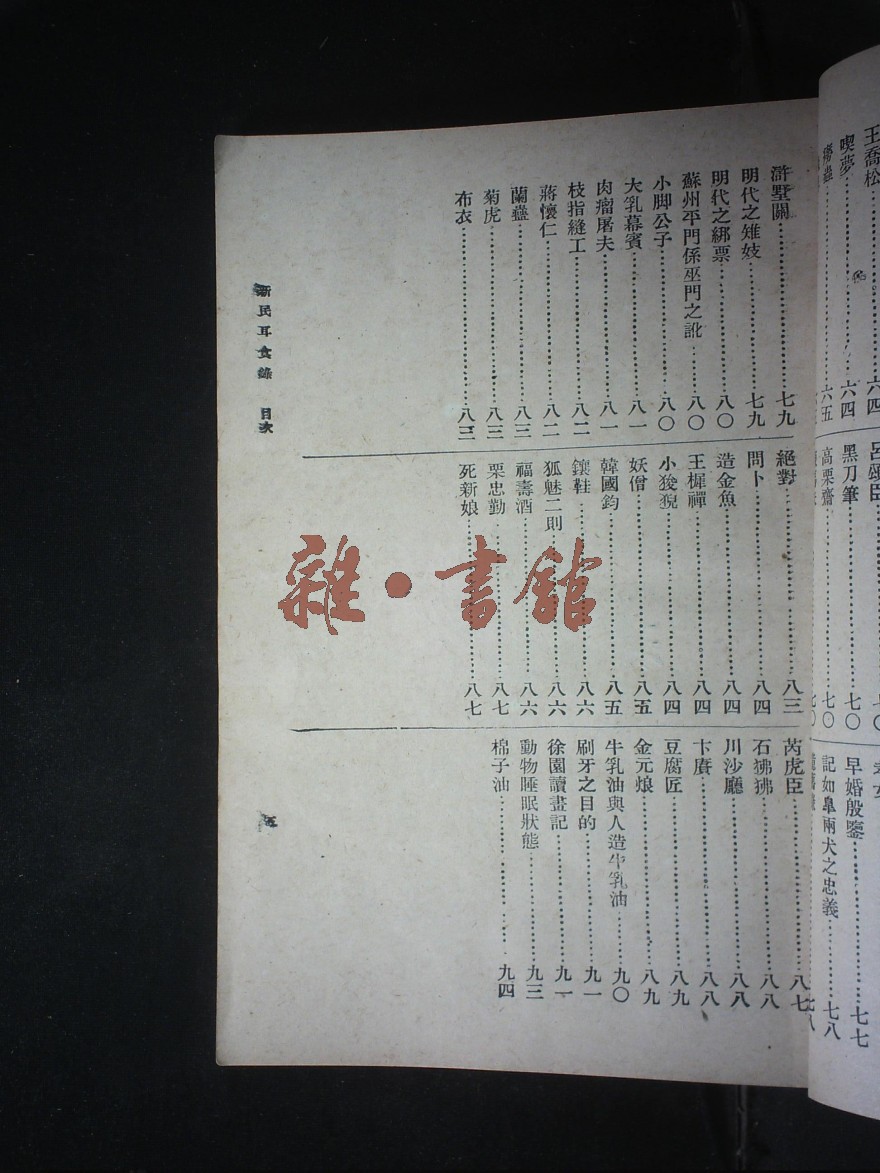 王喬松……六四
喫夢……六四
六五
呂頌臣……七〇
黑刀筆……七〇
高栗齋……七〇
七〇
早婚殷鑒……七七
記如臯兩犬之忠義……七八
七八
滸墅關……七九
明代之雉妓……七九
明代之綁票……八〇
蘇州平門係巫門之訛……八〇
小脚公子……八〇
大乳幕賓……八一
肉瘤屠夫……八一
枝指縫工……八二
蔣懷仁……八二
蘭蠱……八三
菊虎……八三
布衣……八三
絕對……八三
問卜……八四
造金魚……八四
王樨禪……八四
小狻猊……八四
妖僧……八五
韓國鈞……八五
鑲鞋……八六
狐魅二則……八六
福壽酒……八六
栗忠勤……八七
死新娘……八七
芮虎臣……八七
石狒狒……八八
川沙廳……八八
卞賡……八八
豆腐匠……八九
金元烺……八九
牛乳油與人造牛乳油……九〇
刷牙之目的……九一
徐園讀畫記……九一
動物睡眠狀態……九三
棉子油……九四
新民耳食錄 目次
五
雜・書館